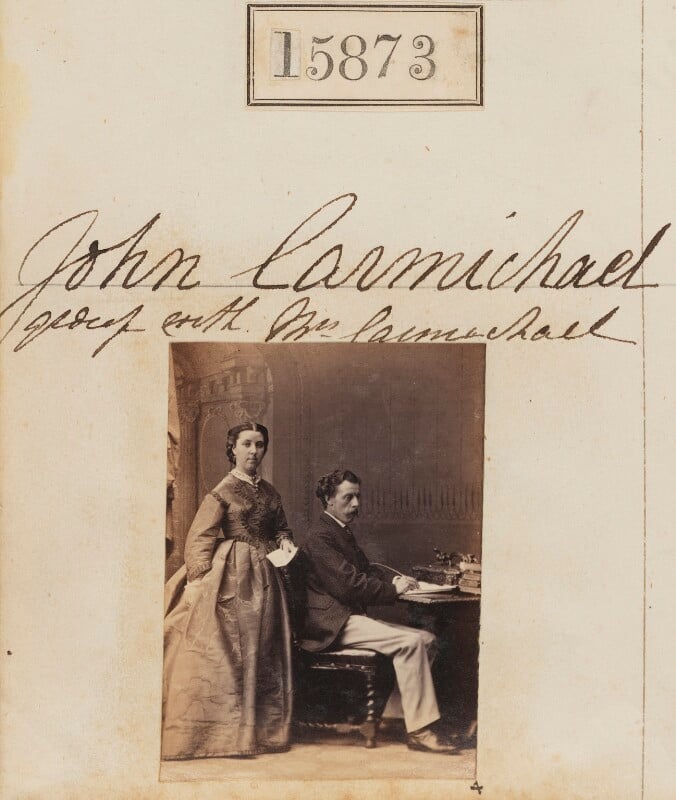 15873
John Carmichael
group with Mrs Carmichael